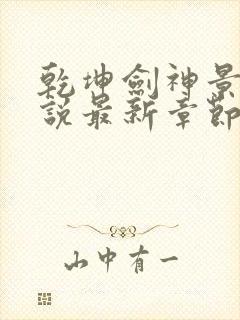 乾坤劍神景
説最新章節
山中有一